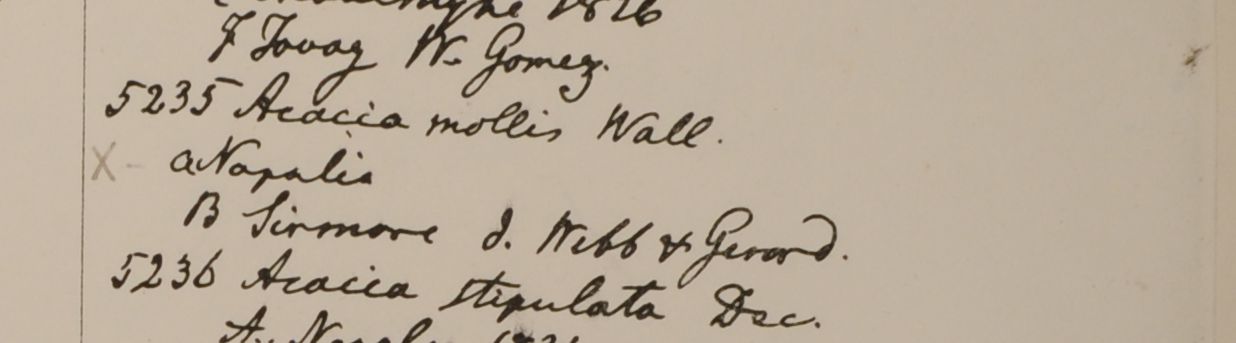 1826
F Tovaz W. Gomez.
5235 Acacia mollis Wall.
X- a Napalia
B Sirmore d. Webb & Gerard.
5236 Acacia stipulata Dec.